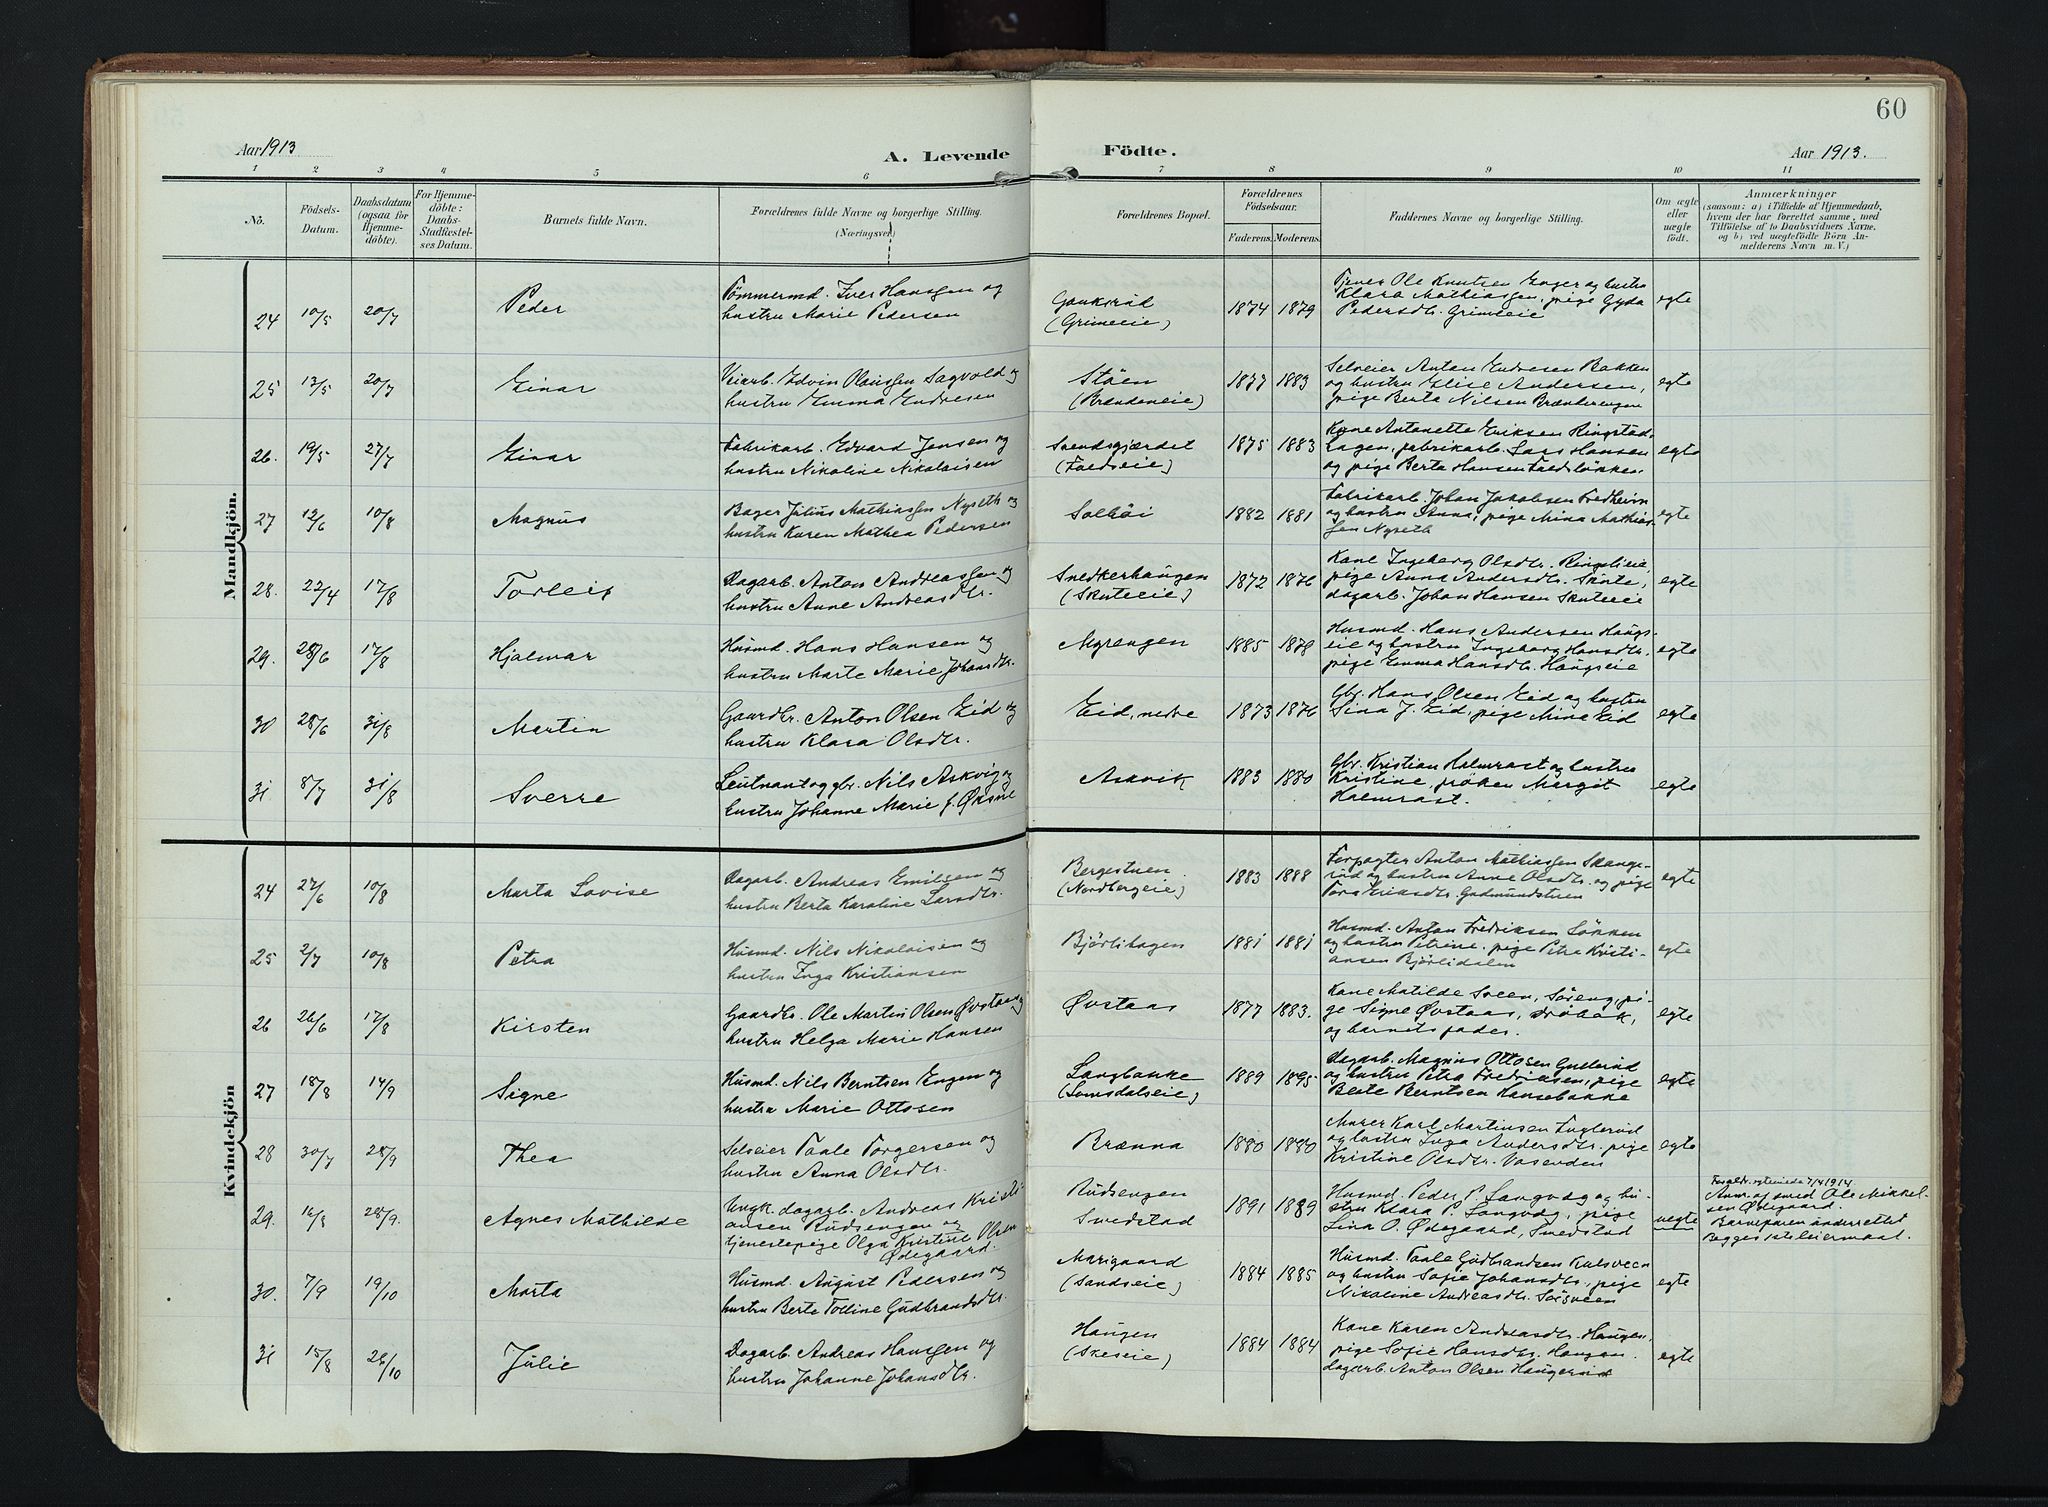 60
Aar 1913
A. Levende
Födte.
Aar 1913.
1 2 3 4 5 6 7 8 9 10 11
No.
Födsels-
Datum.
Daabsdatum
(ogsaa for
Hjemme-
döbte).
For Hjemme-
döbte:
Daabs-
Stadfæstel-
ses Datum.
Barnets fulde Navn.
Forældrenes fulde Navne og borgerlige Stilling.
(Næringsvei)
Forældrenes Bopæl.
Forældrenes
Födselsaar.
Faderens. Moderens.
Faddernes Navne og borgerlige Stilling.
Om ægte
eller
uægte
födt.
Anmærkninger
(saasom: a) i Tilfælde af Hjemmedaab,
hvem der har forrettet samme, med
Tilföielse af to Daabsvidners Navne,
og b) ved uægtefödte Börn An-
melderens Navn m. V.)
Mandkjön.
24 10/5 20/7 Peder
Tömmermd. Iver Hansen og
hustru Marie Pedersen
(Grimeeie)
1874 1879
Tjener Ole Knutsen Enger og hustru
Klara Mathiassen, pige Gyda
Pedersdtr. Grimseie
egte
25 13/5 20/7 Einar
Veiarb. Edvin Olaussen Sagvold og
hustru Emma Endresen
Stöen
(Brændeneie)
1877 1883
Selveier Anton Endresen Bakken
og hustru Elise Andersen,
pige Berta Nilsen Brænderengen
egte
26. 19/5 27/7 Einar
Fabrikarb. Edvard Jensen og
hustru Nikoline Nikolaisen
Svendsgjærdet
(Faldseie)
1875 1883
Kone Antonette Eriksen Ringstad,
hagen, fabrikarb. Lars Hansen
og pige Berta Hansen
egte
27 12/6 10/8 Magnus
Bager Julius Mathiassen Nyseth og
hustru Karen Mathea Pedersen
Solhöi
1882 1881
Fabrikarb. Johan Jakobsen Fredheim
og hustru Anna, pige Mina Mathias-
sen Nyseth
egte
28. 22/4 17/8 Torleif
Dagarb. Anton Andreassen og
hustru Anne Andreasdtr.
Snedkerhaugen
(Skuteeie)
1872 1876
Kone Ingeborg Olsdtr. Ringelieie,
pige Anna Andersdtr. Skute,
dagarb. Johan Hansen Skuteeie
egte
29. 28/6 17/8 Hjalmar
Husmd. Hans Hansen og
hustru Marte Marie Johansdtr.
Myrengen
1885 1878
Husmd. Hans Andersen Haugs-
eie og hustru Ingeborg Hansdtr.,
pige Emma Hansdtr. Haugseie
egte
30 28/6 31/8 Martin
Gaardbr. Anton Olsen Eid og
hustru Klara Olsdtr.
Eid, nedre
1873 1876
Gbr. Hans Olsen Eid og hustru
Lina J. Eid, pige Mina Eid
egte
31 8/7 31/8 Sverre
Leutnant og gbr. Nils Askvig og
hustru Johanne Marie f. Øksne
Askvik
1883 1880
Gbr. Kristian Halmrast og hustru
Kristine, fröken Margit
Halmrast.
egte
Kvindekjön
24 27/6 10/8 Marta Lovise
Dagarb. Andreas Emilsen og
hustru Berta Karoline Larsdtr.
Bergestuen.
(Nordbergeie)
1883 1888
Forpagter Anton Mathiassen Skange-
rud og hustru Anne Olsdtr. og pige
Tora Eriksdtr. Gudmundstuen
egte
25 2/7 10/8 Petra
Husmd. Nils Nikolaisen og
hustru Inga Kristiansen
Björlihagen
1881 1881
Husmd. Anton Fredriksen Lökken
og hustru Petrine, pige Petra Kristi-
ansen Björlidalen
egte
26 26/6 17/8 Kirsten
Gaardbr. Ole Martin Olsen Øvstaas og
hustru Helga Marie Hansen
Øvstaas
1877 1883.
Kone Matilde Sveen, Söreng, pi-
ge Signe Øvstaas, Dröbak,
og barnets fader.
egte
27 18/8 14/9 Signe
Husmd. Nils Berntsen Engen og
hustru Marie Ottosen
Langbakke
(Lomsdalseie)
1889 1895.
Dagarb. Magnus Ottosen Gullerud
og hustru Petra Fredriksen, pige
Berte Berntsen Hansebakke
egte
28 30/7 28/9 Thea
Selveier Paale Torgersen og
hustru Anna Olsdtr.
Brænna
1880 1880
Murer Karl Martinsen Fuglerud
og hustru Inga Andersdtr. pige
Kristine Olsdtr. Vasenden
egte
29. 16/8 28/9. Agnes Mathilde
Ungk. dagarb. Andreas Kristi-
ansen Rudsengen og
tjenestepige Olga Kristine Olsen
Ødegaard.
Rudsengen
Smedstad
1891 1889
Husmd. Peder P. Langvdg og hu-
stru Klara P. Langvdg, pige
Lina O. Ødegaard, Smedstad
uegte
Forældr. egteviede 7/4 1914.
Anm. af smed Ole Mikkel-
sen Ødegaard.
Barneparen underrettet
Begges 1ste leiermaal.
30. 7/9 19/10 Marta
Husmd. August Pedersen og
hustru Berte Tolline Gudbrandsdtr.
Marigaard
(Sandseie)
1884 1885
Husmd. Paale Gudbrandsen Kalsveen
og hustru Sofie Johansdtr, pige
Nikoline Andreasdtr. Sörsveen
egte
31 15/8 26/10 Julie
Dagarb. Andreas Hansen og
hustru Johanne Johansdtr.
Haugen
(Skeseie)
1884 1884
Kone Karen Andreasdtr. Haugen,
pige Sofie Hansdtr. Haugen.
dagarb. Anton Olsen Haugerud
egte